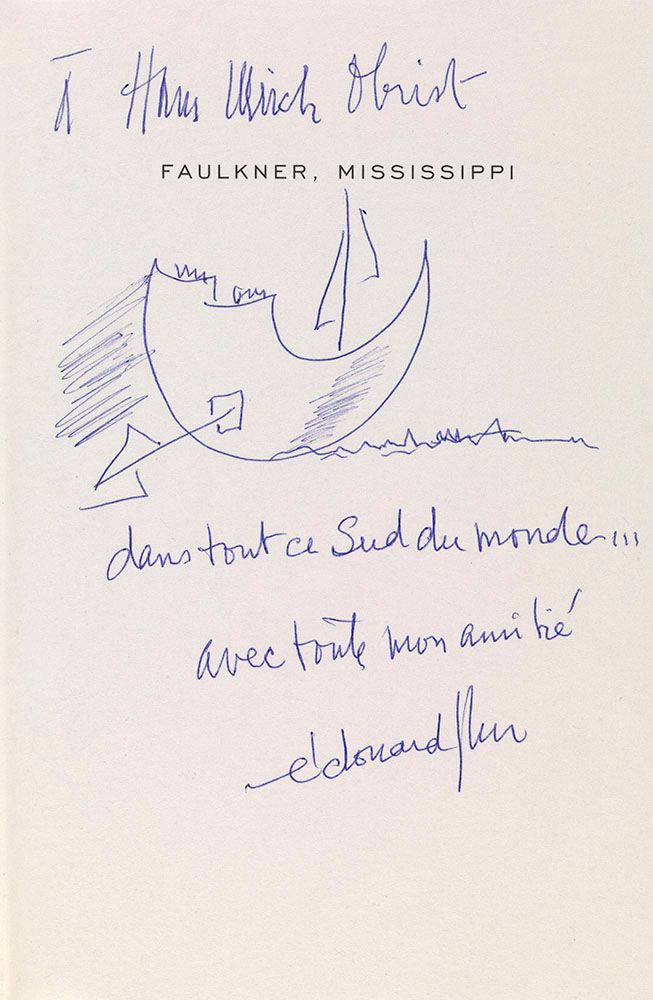 À Hans Ulrich Obrist
FAULKNER, MISSISSIPPI
dans tout ce Sud du monde...
avec toute mon amitié
édouard